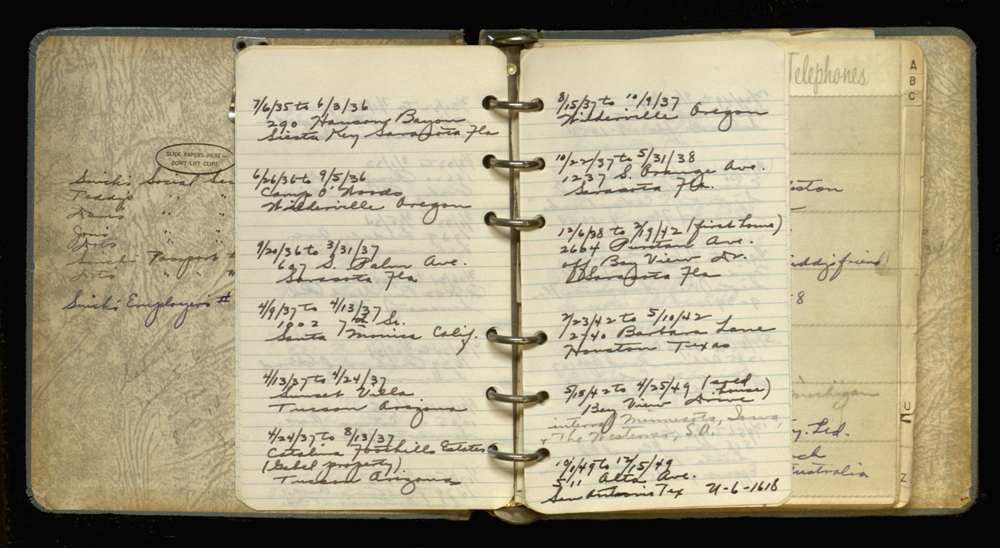 SLICK PAPERS HERE—
DON'T LIFT CLIP!
Smick's Social Sec
Teddy's " "
Dot's " "
Smick's Passport #
Dot's " "
Smick's Employer's #
7/6/35 to 6/3/36
290 Hanson Bayou
Siesta Key Sarasota Fla
6/26/36 to 9/5/36
Camp O' Woods
Wilderville Oregon
9/20/36 to 3/31/37
697 S. Palm Ave.
Sarasota Fla
4/9/37 to 4/13/37
1802 7th St.
Santa Monica Calif.
4/13/37 to 4/24/37
Sunset Villa
Tucson Arizona
4/24/37 to 8/13/37
Catalina Foothills Estates
(Gabel property).
Tucson Arizona
8/15/37 to 10/9/37
Wilderville Oregon
10/22/37 to 5/31/38
1237 S. Orange Ave.
Sarasota Fla.
12/6/38 to 2/19/42 (first home)
2664 Puritan Ave.
off Bay View Dr.
Sarasota Fla
2/23/42 to 5/10/42
1240 Barbara Lane
Houston Texas
5/15/42 to 4/25/49 (sold
house)
Bay View Drive
Minnesota, Iowa,
+ The Westerner, S.A.
10/1/49 to 12/15/49
511 Alta Ave.
San Antonio Tex U-6-1618
Telephones
A
B
C
eston
ddy's friend)
8
michigan
y. Ltd.
ck
Australia
U
Z